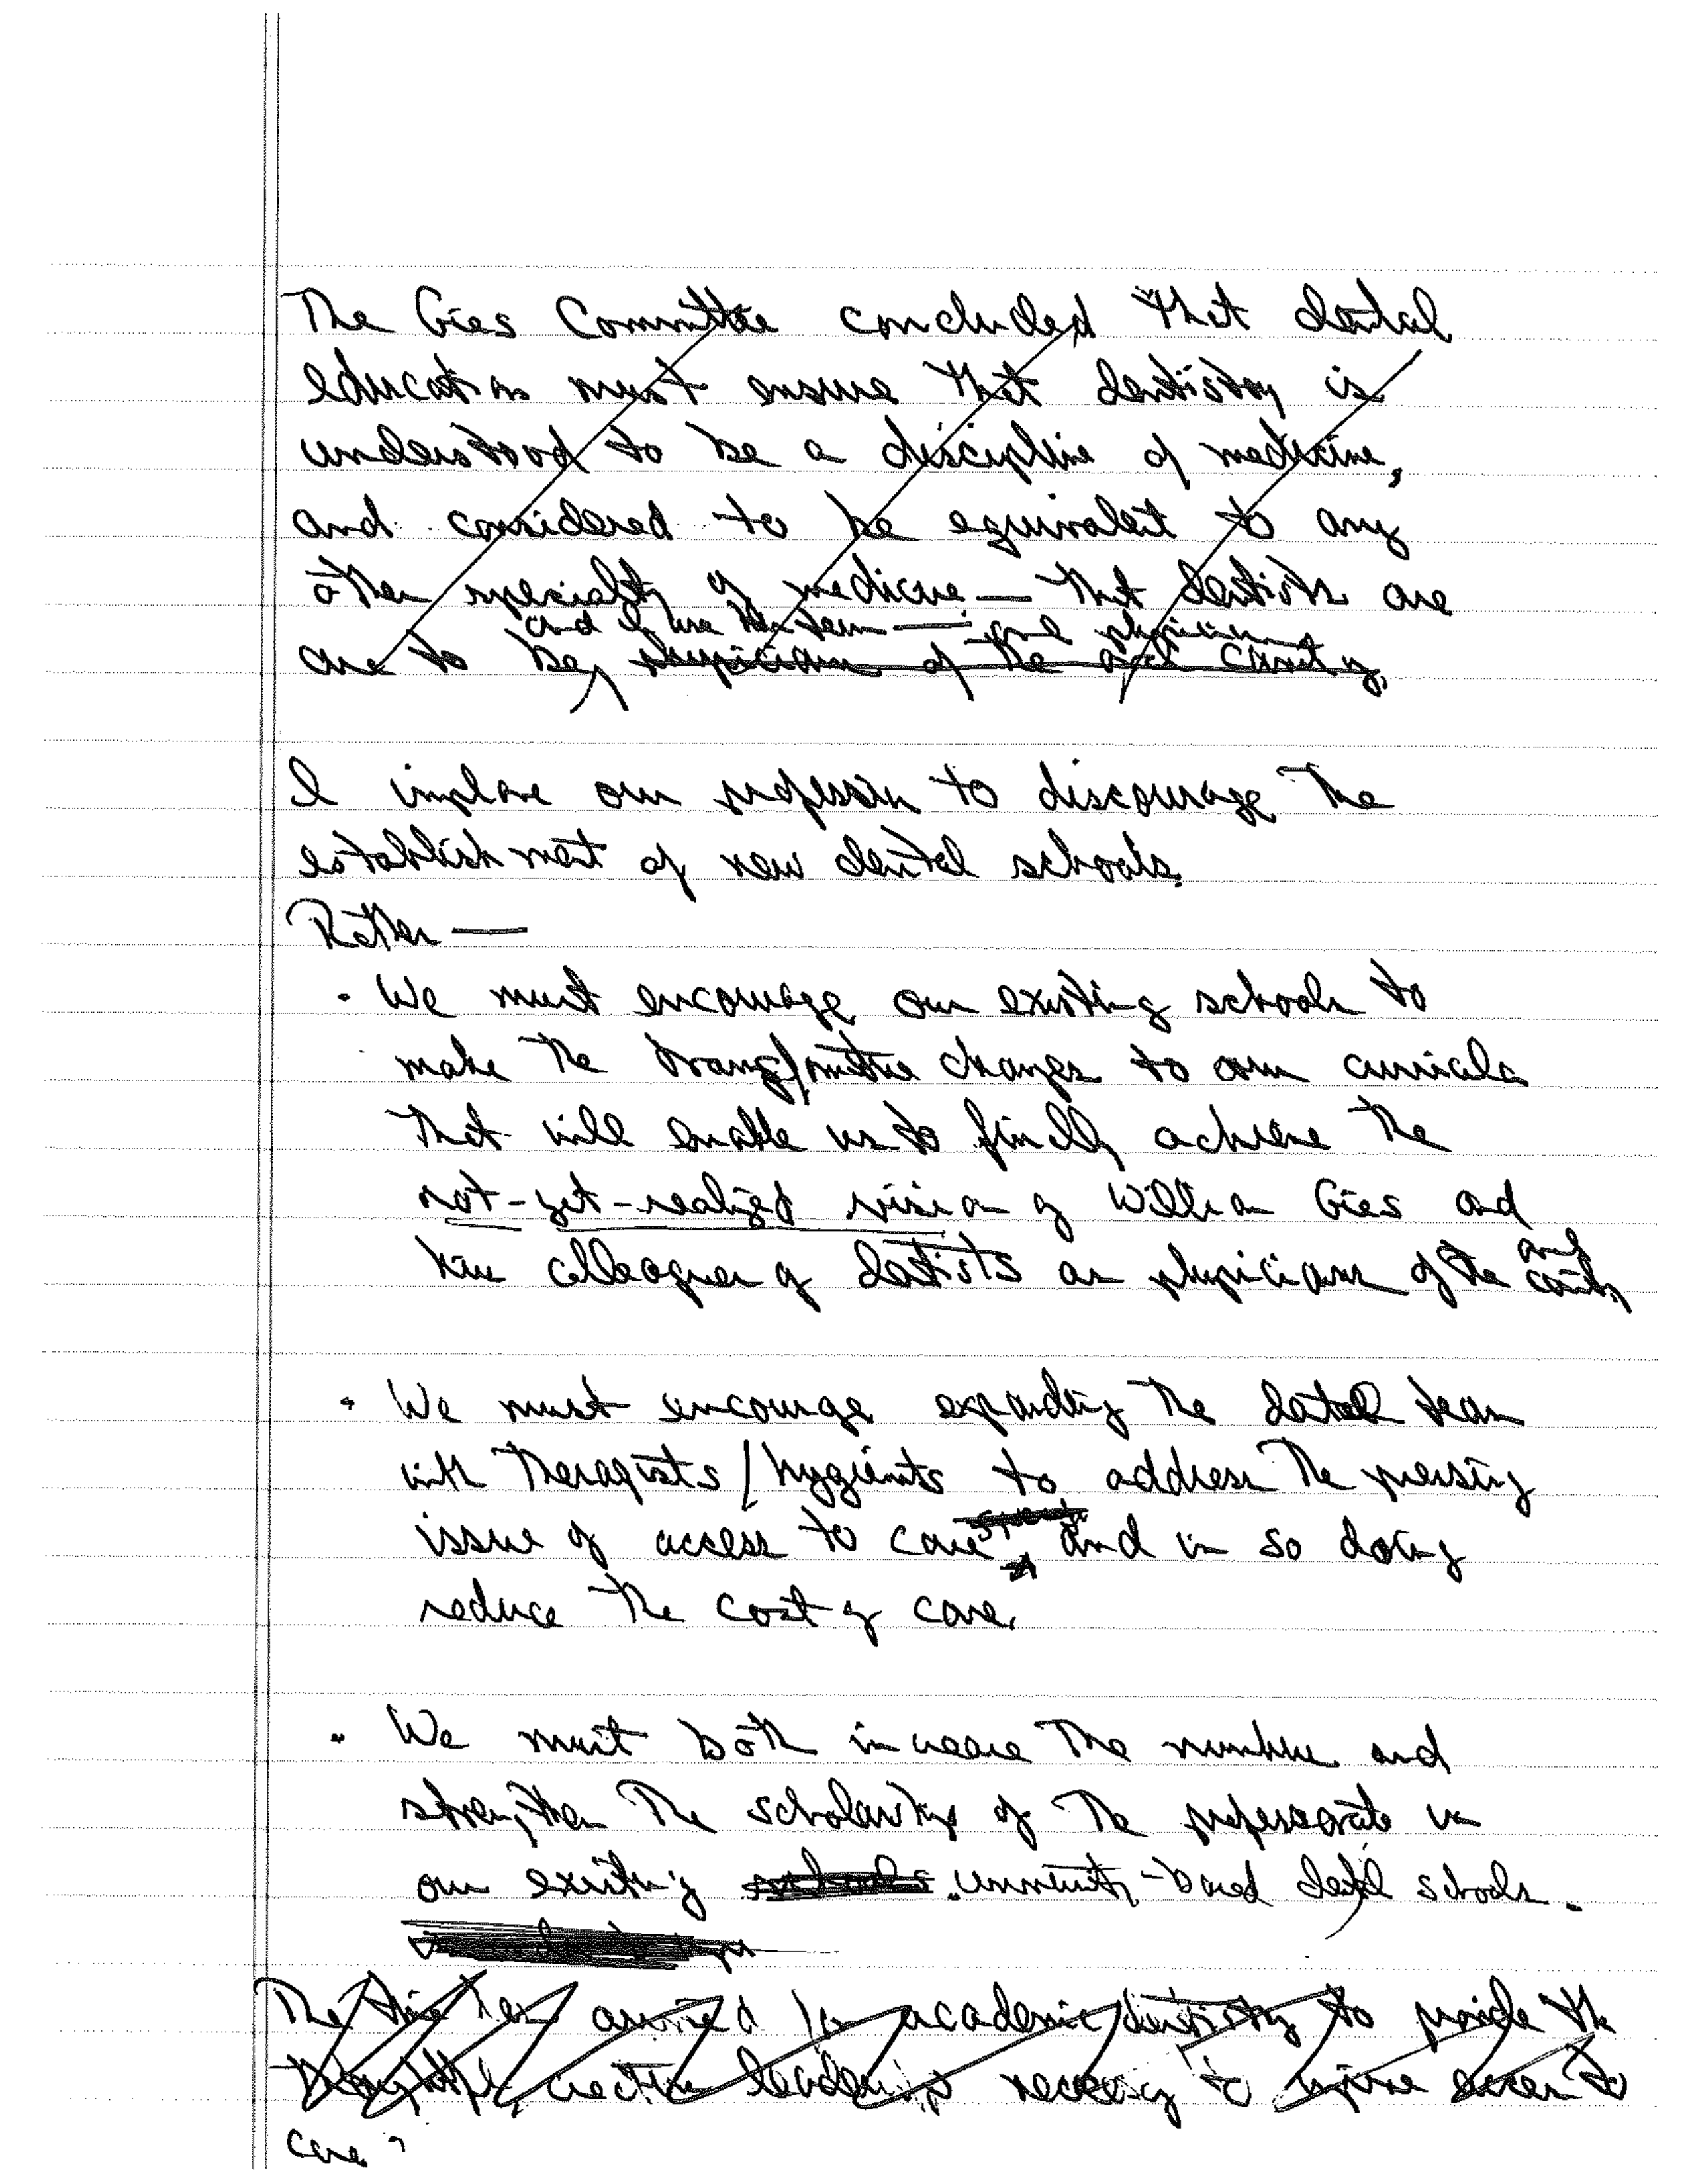 The Gies Committee concluded "that dental
education must ensure that dentistry is
understood to be a discipline of medicine,
and considered to be equivalent to any
other specialty of medicine — that dentists are
and I use the term — are physicians
are to be physicians of the oral cavity.
I implore our profession to discourage the
establishment of new dental schools.
Rather —
· We must encourage our existing schools to
make the transformative changes to our curricula
that will enable us to finally achieve the
not-yet-realized vision of William Gies and
his colleagues of dentists as physicians of the oral
cavity
· We must encourage expanding the dental team
with therapists/hygienists to address the pressing
issue of access to care and in so doing
reduce the cost of care.
· We must both increase the number and
strengthen the scholarship of the professorate in
our existing schools university-based dental schools.
The time has arrived for academic dentistry to provide the
thoughtful, creative leadership necessary to improve access to
care."